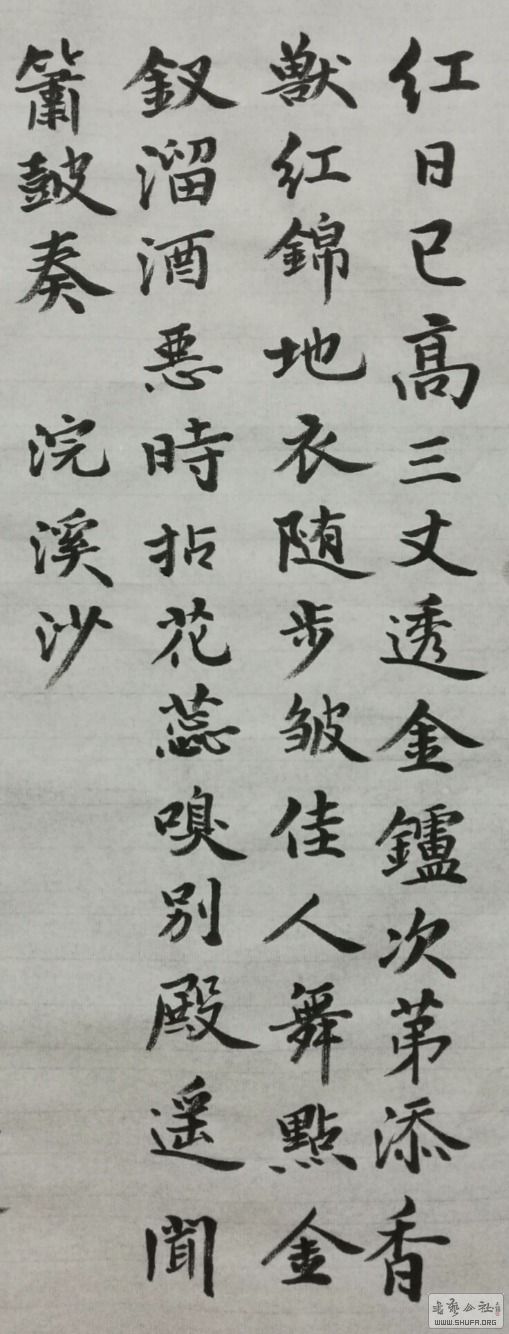 红日已高三丈透金鑪次苐添香
獸红錦地衣随步皱佳人舞點金
釵溜酒悪時拈花蕊嗅别殿遥聞
簫鼓奏 浣溪沙
书艺公社
WWW.SHUFA.ORG